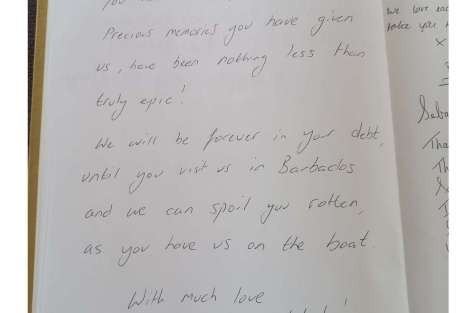 Precious memories you have given
us, have been nothing less than
truly epic!
We will be forever in your debt,
until you visit us in Barbados
and we can spoil you rotten,
as you have us on the boat.
With much love
We love
x
Seba
Tha
Th